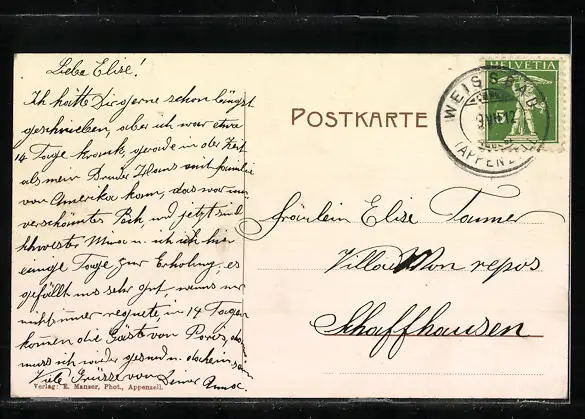 Liebe Elise!
Ich hätte Dir gerne schon längst
geschrieben, aber ich war etwa
14 Tage krank, gerade in der Zeit
als mein Bruder Hans mit Familie
von Amerika kam, das war ein
verschöntes Pech, und jetzt sind
Schwester u. ich hier
einige Tage zur Erholung, es
gefällt uns sehr gut, wenns nur
nicht immer regnete, in 14 Tagen
kommen die Gäste von Paris, da
muss ich wieder gesund u. daheim sein
Viele Grüsse von Deiner
Verlag: E. Manser, Phot., Appenzell.
POSTKARTE
HELVETIA
WEISSBAD
(APPENZELL)
Fräulein Elise Tanner
Villa Mon repos
Schaffhausen